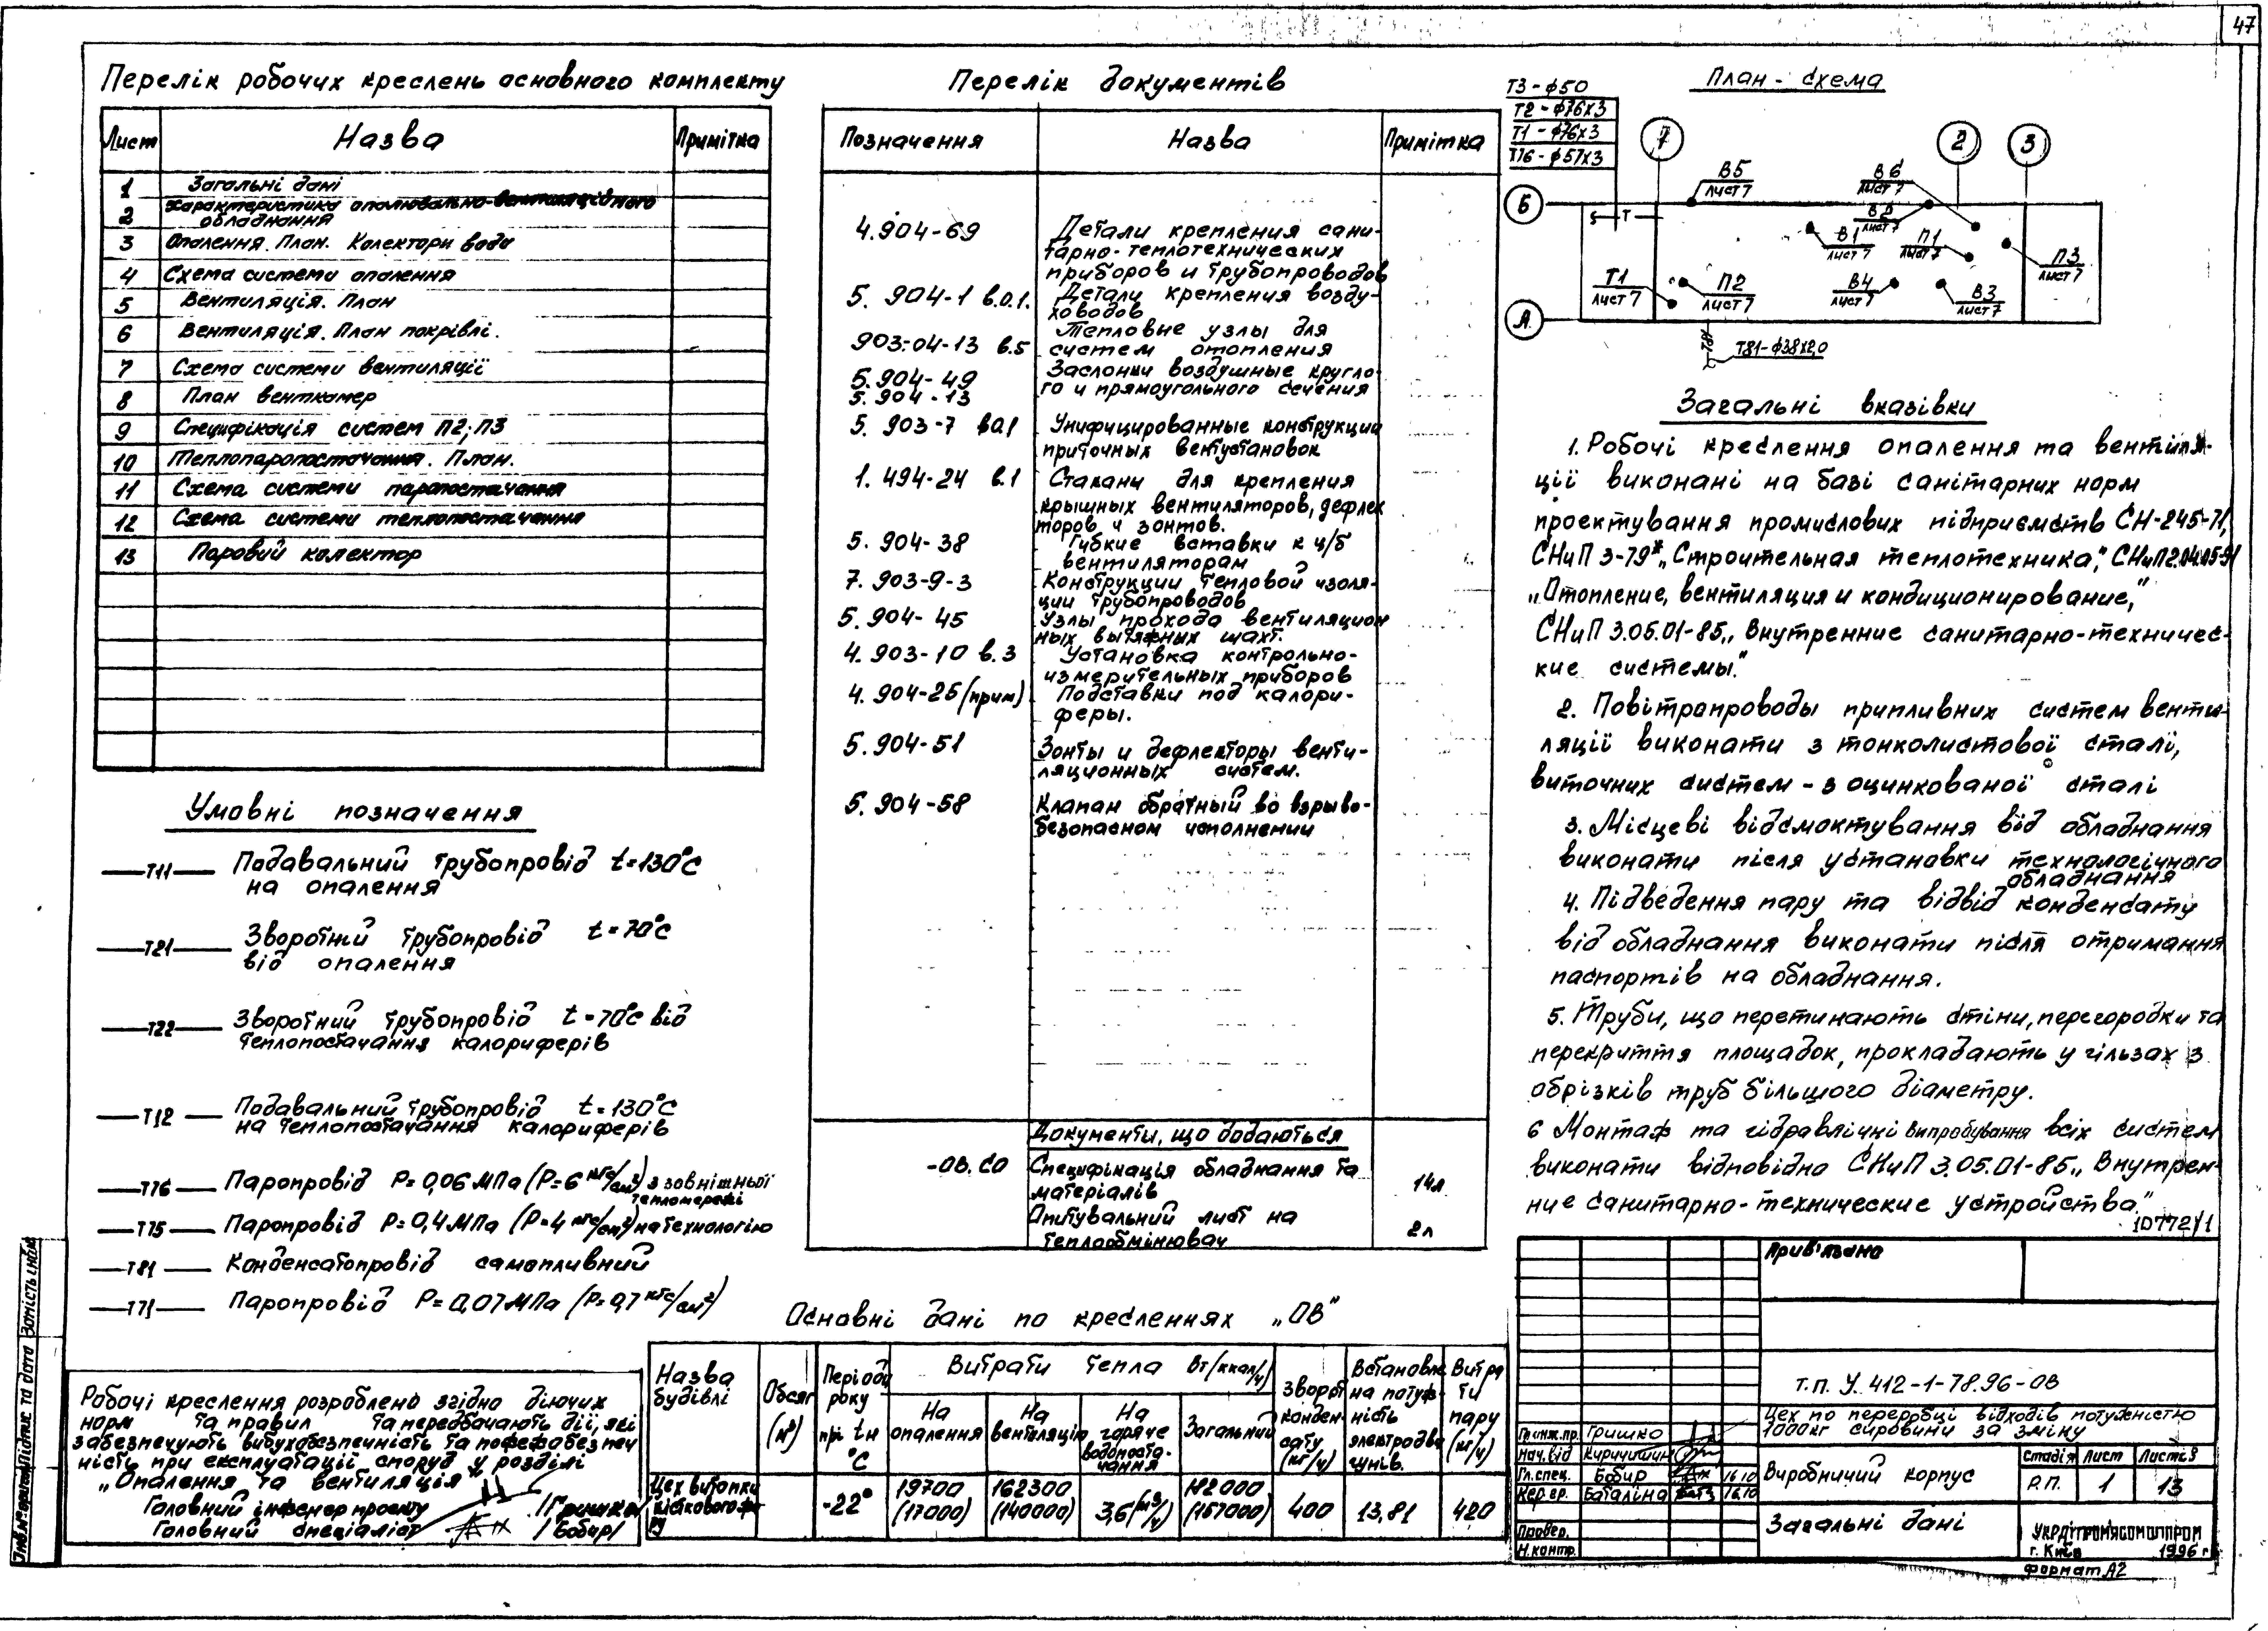 47
Перелік робочих креслень основного комплекту
Лист Назва Примітка
1 Загальні дані
2 Характеристика опалювально-вентиляційного
обладнання
3 Опалення. План. Колектори вода
4 Схема системи опалення
5 Вентиляція. План
6 Вентиляція. План покрівлі.
7 Схема системи вентиляції
8 План венткамер
9 Специфікація систем П2; П3
10 Теплопаропостачання. План.
11 Схема системи паропостачання
12 Схема системи теплопостачання
13 Паровий колектор
Умовні позначення
Т11 Подавальний трубопровід t=130°С
на опалення
Т21 Зворотній трубопровід t=70°С
від опалення
Т22 Зворотний трубопровід t=70°С від
теплопостачання калориферів
Т12 Подавальний трубопровід t=130°С
на теплопостачання калориферів
Т76 Паропровід Р=0,06 МПа (Р=6 кгс/см²) з зовнішньої
тепломережі
Т75 Паропровід Р=0,4 МПа (Р=4 кгс/см²) на технологію
Т81 Конденсатопровід самопливний
Т71 Паропровід Р=0,07 МПа (Р=0,7 кгс/см²)
Робочі креслення розроблено згідно діючих
норм та правил та передбачають дії, які
забезпечують вибухобезпечність та пожежобезпеч
ність при експлуатації споруд у розділі
„Опалення та вентиляція"
Головний інженер проекту /Гришко/
Головний спеціаліст /Бобир/
Перелік документів
Позначення Назва Примітка
4.904-69 Детали крепления сани-
тарно-теплотехнических
приборов и трубопроводов
5.904-1 в.0.1. Детали крепления возду-
ховодов
903-04-13 в.5 Тепловые узлы для
систем отопления
5.904-49 Заслонки воздушные кругло-
5.904-13 го и прямоугольного сечения
5.903-7 в0.1 Унифицированные конструкции
приточных вентустановок
1.494-24 в.1 Стаканы для крепления
крышных вентиляторов, дефлек
торов и зонтов.
5.904-38 Гибкие вставки к ц/б
вентиляторам
7.903-9-3 Конструкции тепловой изоля-
ции трубопроводов
5.904-45 Узлы прохода вентиляцион
ных вытяжных шахт.
4.903-10 в.3 Установка контрольно-
измерительных приборов
4.904-25 (прим) Подставки под калори-
феры.
5.904-51 Зонты и дефлекторы венти-
ляционных систем.
5.904-58 Клапан обратный во взрыво-
безопасном исполнении
Документы, що додаються
-ОВ.СО Специфікація обладнання та
матеріалів 14л
Опитувальний лист на
теплообмінювач 2л
Основні дані по кресленнях „ОВ"
Назва будівлі Обсяг (м³) Періоди року прі tн °С Витрати тепла Вт/(ккал/ч) Зворот конден- сату (кг/ч) Встановле на потуж- ність электродви гунів. Витра ти пару (кг/ч)
На опалення На вентиляцію На гаряче водопоста- чання Загальний
Цех витопки -22° 19700 (17000) 162300 (140000) 3,6 (м³/ч) 182000 (157000) 400 13,81 420
Т3-ф50
Т2-ф76х3
Т1-ф76х3
Т76-ф57х3
План-схема
7 2 3
Б
А
В5 лист 7
В6 лист 7
В2 лист 7
В1 лист 7
П1 лист 7
П3 лист 7
Т1 лист 7
П2 лист 7
В4 лист 7
В3 лист 7
Т81
Т81-ф38х2,0
Загальні вказівки
1. Робочі креслення опалення та вентиля-
ції виконані на базі санітарних норм
проектування промислових підприємств СН-245-71,
СНиП 3-79* „Строительная теплотехника", СНиП2.04.05-91
„Отопление, вентиляция и кондиционирование",
СНиП 3.05.01-85 „Внутренние санитарно-техничес-
кие системы."
2. Повітропроводы припливних систем венти-
ляції виконати з тонколистової сталі,
виточних систем - з оцинкованої сталі
3. Місцеві відсмоктування від обладнання
виконати після установки технологічного
обладнання
4. Підведення пару та відвід конденсату
від обладнання виконати після отримання
паспортів на обладнання.
5. Труби, що перетинають стіни, перегородки та
перекриття площадок, прокладають у гільзах з
обрізків труб більшого діаметру.
6 Монтаж та гідравлічні випробування всіх систем
виконати відповідно СНиП 3.05.01-85 „Внутрен-
ние санитарно-технические устройства."
10772/1
Прив'язано
Т.П. У. 412-1-78.96-ОВ
Цех по переробці відходів потужністю
1000кг сировини за зміну
Гл.инж.пр. Гришко
Нач.від
Гл.спец. Бобир 16.10
Кер.гр. Баталіна 16.10
Провер.
Н.контр.
Виробничий корпус
Стадія Лист Листів
Р.П. 1 13
Загальні дані
УКРДІПРОМЯСОМОЛПРОМ
г. Київ 1996 г
Формат А2
Інв.№ оригін. Підпис та дата Замість інв.№